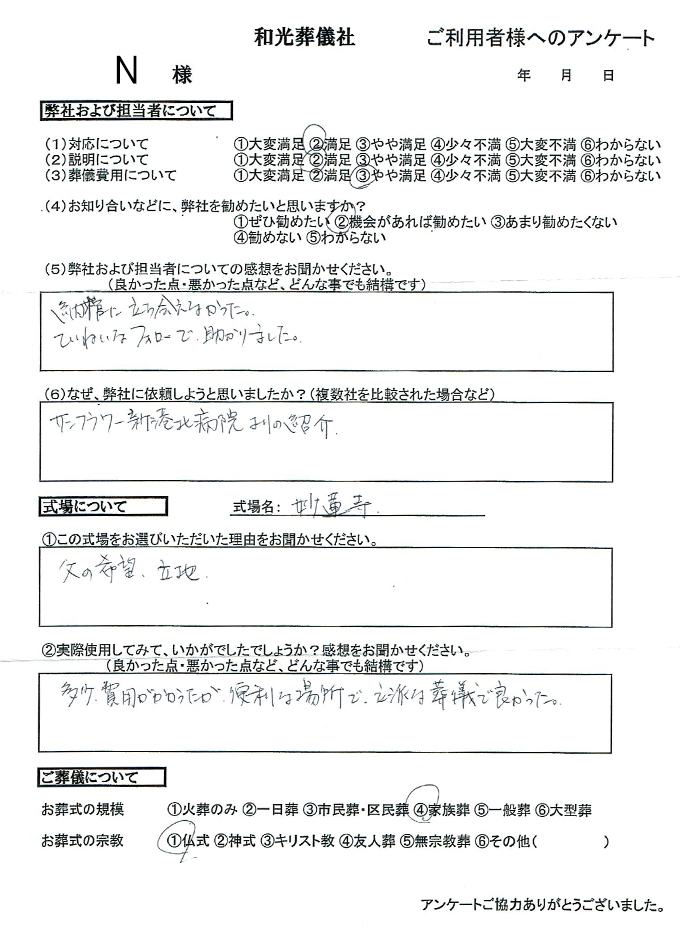 和光葬儀社 ご利用者様へのアンケート
N 様 年 月 日
弊社および担当者について
(1)対応について ①大変満足 ②満足 ③やや満足 ④少々不満 ⑤大変不満 ⑥わからない
(2)説明について ①大変満足 ②満足 ③やや満足 ④少々不満 ⑤大変不満 ⑥わからない
(3)葬儀費用について ①大変満足 ②満足 ③やや満足 ④少々不満 ⑤大変不満 ⑥わからない
(4)お知り合いなどに、弊社を勧めたいと思いますか?
①ぜひ勧めたい ②機会があれば勧めたい ③あまり勧めたくない
④勧めない ⑤わからない
(5)弊社および担当者についての感想をお聞かせください。
(良かった点・悪かった点など、どんな事でも結構です)
納棺に立ち会えなかった。
ていねいなフォローで、助かりました。
(6)なぜ、弊社に依頼しようと思いましたか?(複数社を比較された場合など)
サンフラワー新港北病院よりの紹介.
式場について 式場名: 妙蓮寺.
①この式場をお選びいただいた理由をお聞かせください。
父の希望、立地.
②実際使用してみて、いかがでしたでしょうか?感想をお聞かせください。
(良かった点・悪かった点など、どんな事でも結構です)
多少、費用がかかったが、便利な場所で、立派な葬儀で良かった。
ご葬儀について
お葬式の規模 ①火葬のみ ②一日葬 ③市民葬・区民葬 ④家族葬 ⑤一般葬 ⑥大型葬
お葬式の宗教 ①仏式 ②神式 ③キリスト教 ④友人葬 ⑤無宗教葬 ⑥その他( )
アンケートご協力ありがとうございました。